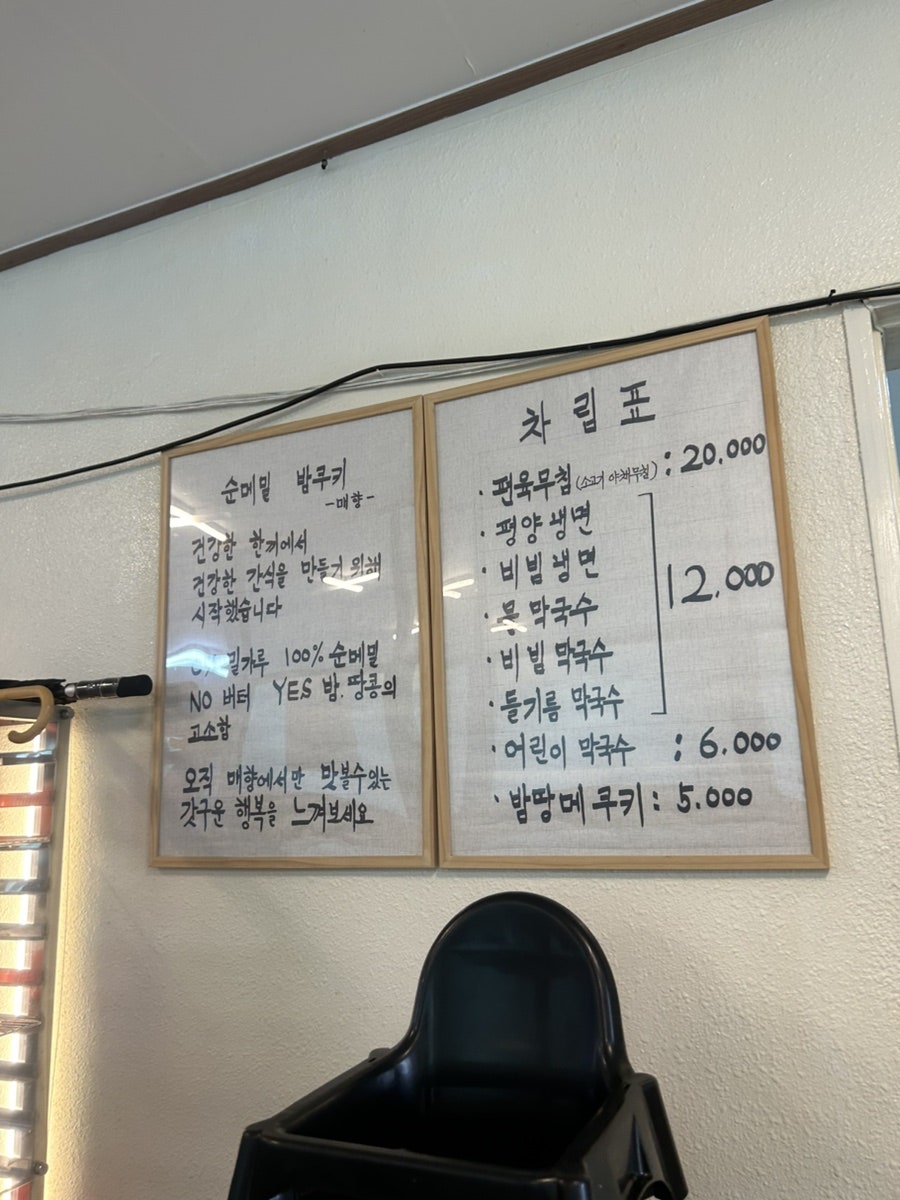 순메밀 밤쿠키
-매향-
건강한 한끼에서
건강한 간식을 만들기 위해
시작했습니다
밀가루 100% 순메밀
NO 버터 YES 밤, 땅콩의
고소함
오직 매향에서만 맛볼수있는
갓구운 행복을 느껴보세요
차림표
· 편육무침 (소고기 야채무침) : 20.000
· 평양냉면
· 비빔냉면
· 물 막국수
· 비빔 막국수
· 들기름 막국수
12.000
· 어린이 막국수 : 6.000
· 밤땅메 쿠키 : 5.000